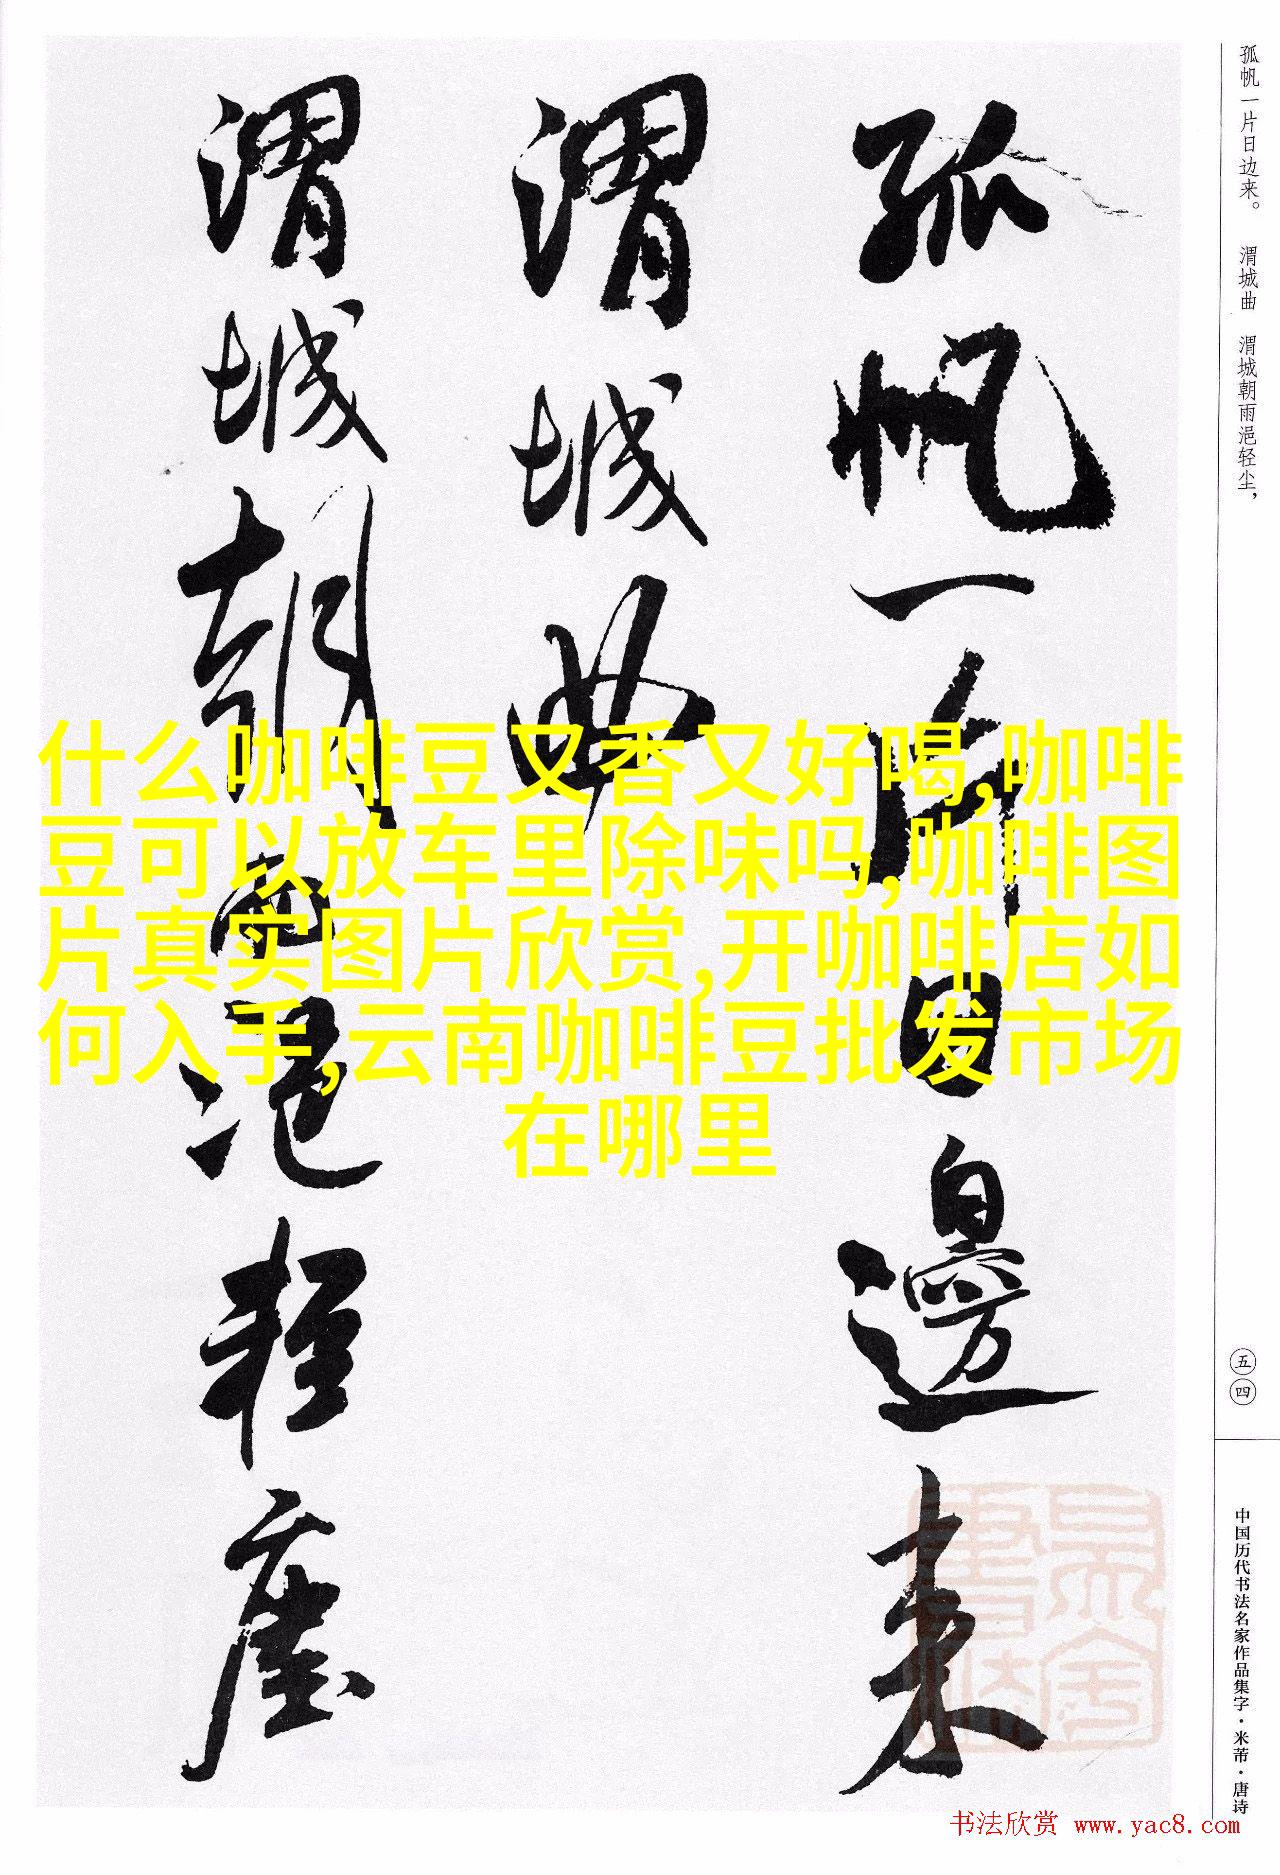 孤帆一片日边来。 渭城曲 渭城朝雨浥轻尘，
孤帆一片日邊来
渭城曲
渭城朝雨浥轻塵
什么咖啡豆又香又好喝,咖啡
豆可以放车里除味吗,咖啡图
片真实图片欣赏,开咖啡店如
何入手,云南咖啡豆批发市场
在哪里
五四
中国历代书法名家作品集字·米芾·唐诗
书法欣赏 www.yac8.com